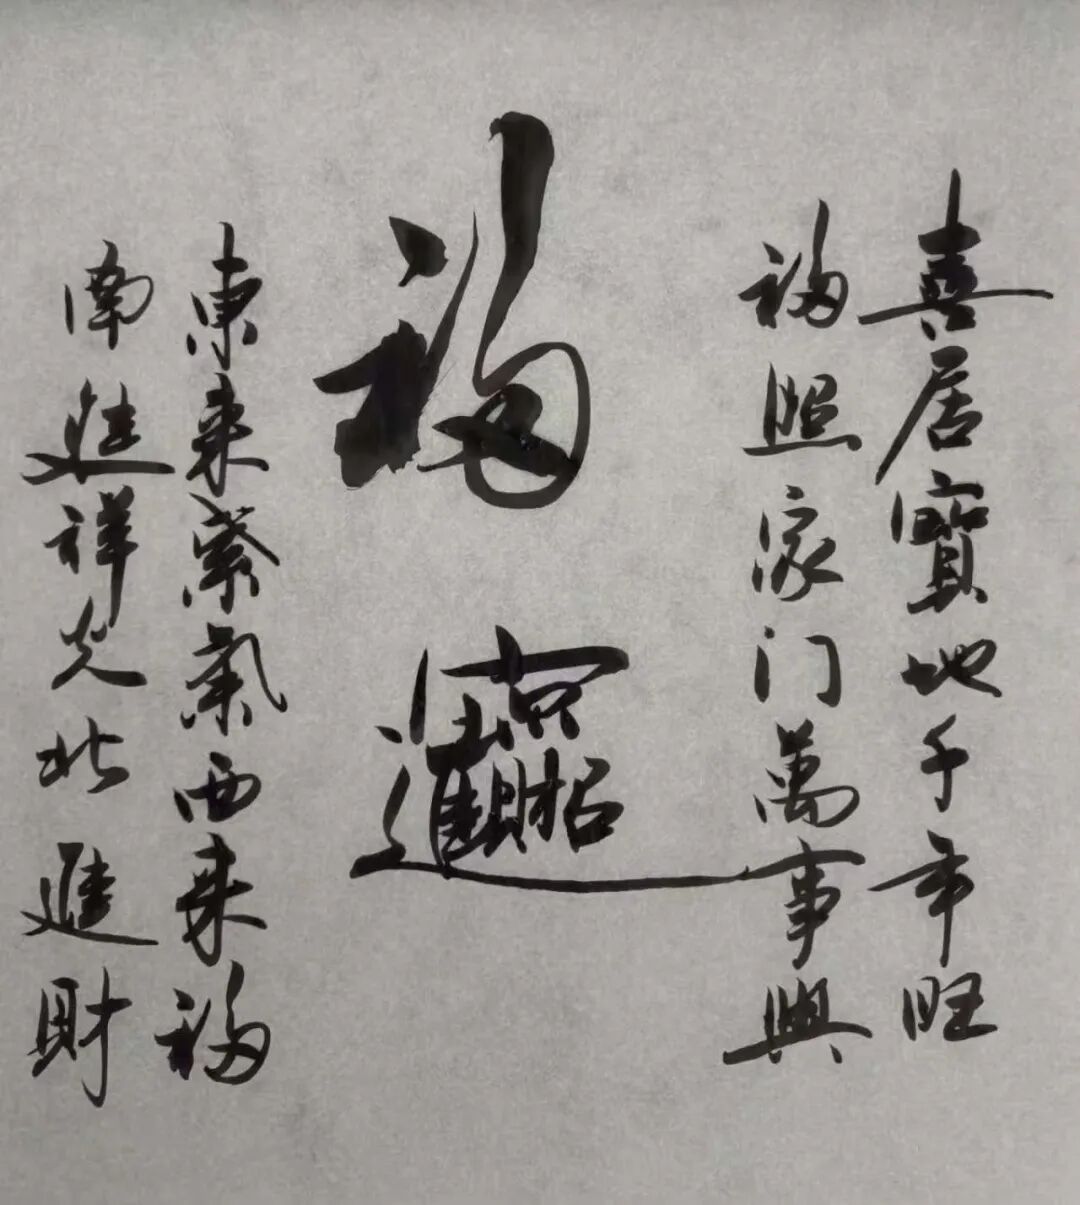 喜居寶地千年旺
福照家门萬事興
福
招財進寶
東来紫氣西来福
南進祥光北進財